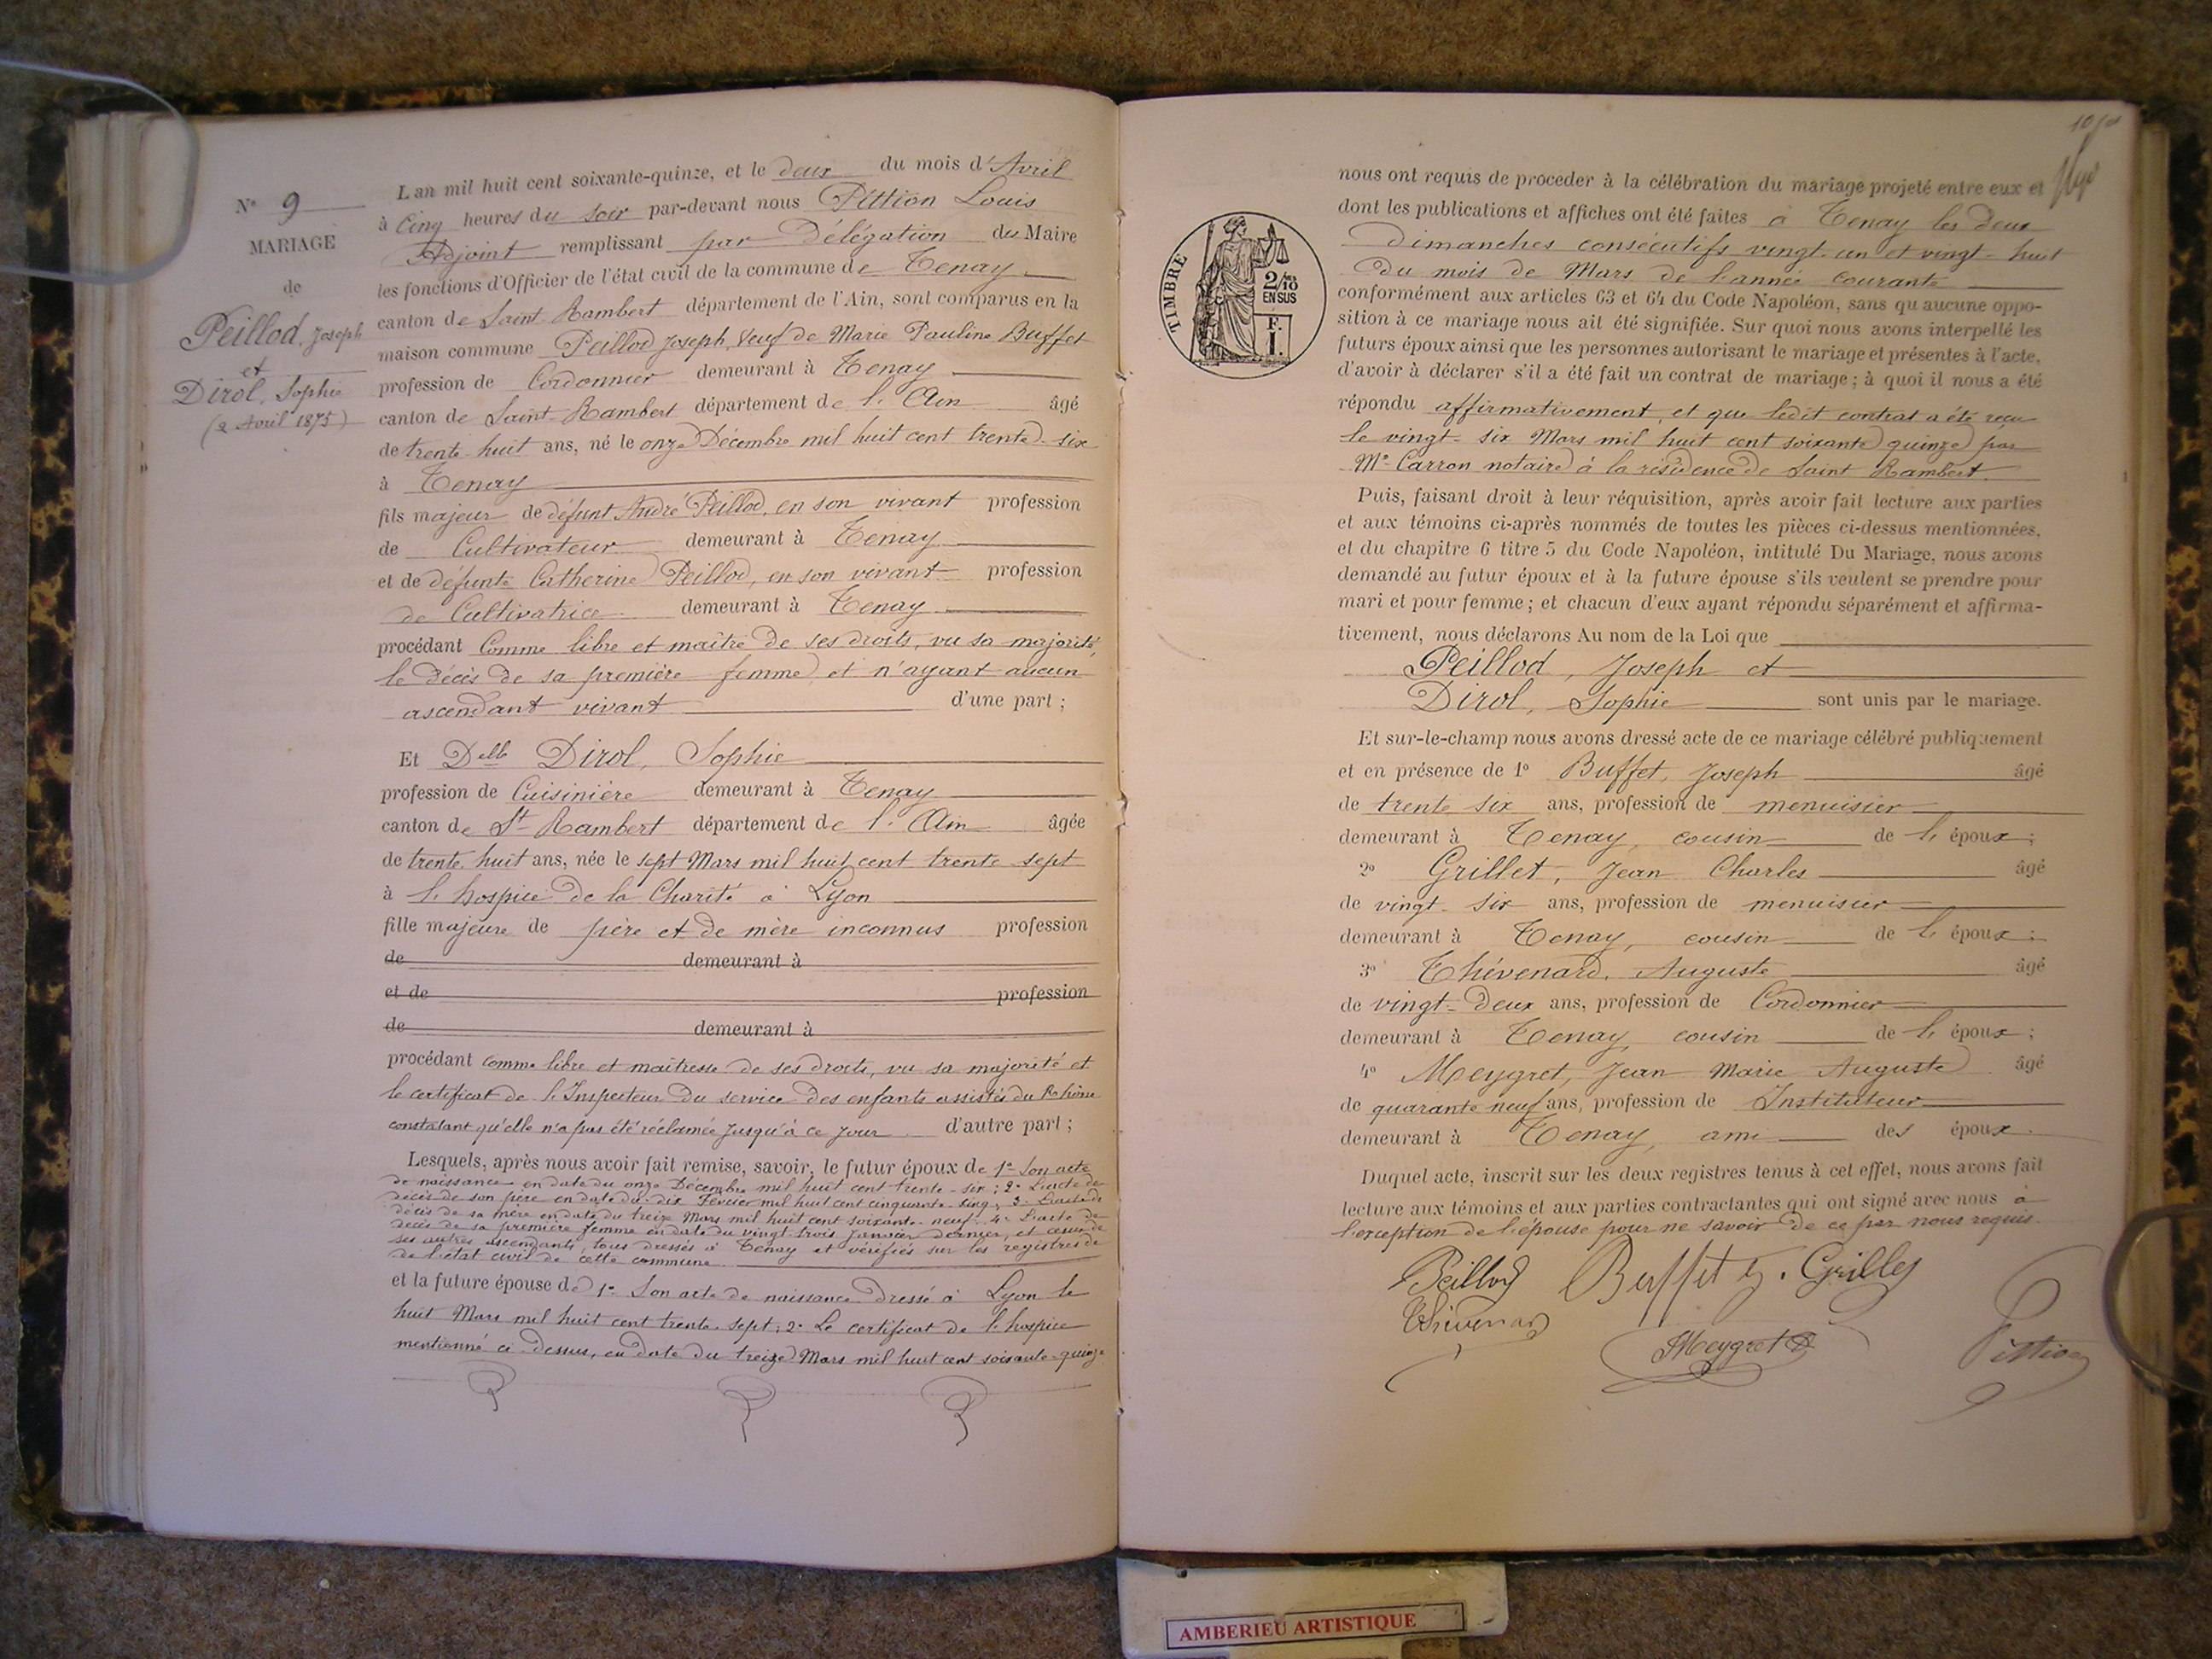 N° 9
MARIAGE
de
Peillod, Joseph
et
Dirol, Sophie
(2 Avril 1875)
L'an mil huit cent soixante-quinze, et le deux du mois d'Avril
à Cinq heures du soir par-devant nous Pittion Louis
Adjoint remplissant par Délégation du Maire
les fonctions d'Officier de l'état civil de la commune de Tenay
canton de Saint-Rambert département de l'Ain, sont comparus en la
maison commune Peillod Joseph, Veuf de Marie Pauline Buffet
profession de Cordonnier demeurant à Tenay
canton de Saint-Rambert département de l'Ain âgé
de trente-huit ans, né le onze Décembre mil huit cent trente-six
à Tenay
fils majeur de défunt André Peillod, en son vivant profession
de Cultivateur demeurant à Tenay
et de défunte Catherine Peillod, en son vivant profession
de Cultivatrice demeurant à Tenay
procédant Comme libre et maître de ses droits, vu sa majorité,
le décès de sa première femme, et n'ayant aucun
ascendant vivant d'une part ;
Et Delle Dirol, Sophie
profession de Cuisinière demeurant à Tenay
canton de St-Rambert département de l'Ain âgée
de trente-huit ans, née le sept Mars mil huit cent trente-sept
à l'hospice de la Charité à Lyon
fille majeure de père et de mère inconnus profession
de demeurant à
et de profession
de demeurant à
procédant comme libre et maîtresse de ses droits, vu sa majorité et
le certificat de l'Inspecteur du service des enfants assistés du Rhône
constatant qu'elle n'a pas été réclamée jusqu'à ce jour d'autre part ;
Lesquels, après nous avoir fait remise, savoir, le futur époux de 1° Son acte
de naissance en date du onze Décembre mil huit cent trente-six ; 2° L'acte de
décès de son père en date du dix Février mil huit cent cinquante-cinq ; 3° L'acte de
décès de sa mère en date du treize Mars mil huit cent soixante-neuf ; 4° L'acte de
décès de sa première femme en date du vingt-trois Janvier dernier, et ceux de
ses autres ascendants, tous dressés à Tenay et vérifiés sur les registres de
de l'état civil de cette commune
et la future épouse de 1° Son acte de naissance dressé à Lyon le
huit Mars mil huit cent trente-sept ; 2° Le certificat de l'hospice
mentionné ci-dessus, en date du treize Mars mil huit cent soixante-quinze
TIMBRE
2/10
EN SUS
F.
I.
nous ont requis de proceder à la célébration du mariage projeté entre eux et
dont les publications et affiches ont été faites à Tenay les deux
Dimanches consécutifs vingt-un et vingt-huit
du mois de Mars de l'année courante
conformément aux articles 63 et 64 du Code Napoléon, sans qu'aucune oppo-
sition à ce mariage nous ait été signifiée. Sur quoi nous avons interpellé les
futurs époux ainsi que les personnes autorisant le mariage et présentes à l'acte,
d'avoir à déclarer s'il a été fait un contrat de mariage ; à quoi il nous a été
répondu affirmativement, et que ledit contrat a été reçu
le vingt-six Mars mil huit cent soixante quinze par
Me Carron notaire à la résidence de Saint Rambert.
Puis, faisant droit à leur réquisition, après avoir fait lecture aux parties
et aux témoins ci-après nommés de toutes les pièces ci-dessus mentionnées,
et du chapitre 6 titre 5 du Code Napoléon, intitulé Du Mariage, nous avons
demandé au futur époux et à la future épouse s'ils veulent se prendre pour
mari et pour femme ; et chacun d'eux ayant répondu séparément et affirma-
tivement, nous déclarons Au nom de la Loi que
Peillod, Joseph et
Dirol, Sophie sont unis par le mariage.
Et sur-le-champ nous avons dressé acte de ce mariage célébré publiquement
et en présence de 1° Buffet, Joseph âgé
de trente six ans, profession de menuisier
demeurant à Tenay, cousin de l'époux ;
2° Grillet, Jean Charles âgé
de vingt-six ans, profession de menuisier
demeurant à Tenay, cousin de l'époux ;
3° Thévenard, Auguste âgé
de vingt-deux ans, profession de Cordonnier
demeurant à Tenay, cousin de l'époux ;
4° Meygret, Jean Marie Auguste âgé
de quarante neuf ans, profession de Instituteur
demeurant à Tenay, ami des époux.
Duquel acte, inscrit sur les deux registres tenus à cet effet, nous avons fait
lecture aux témoins et aux parties contractantes qui ont signé avec nous à
l'exception de l'épouse pour ne savoir de ce par nous requis.
Peillod Buffet
Meygret Pittion
AMBERIEU ARTISTIQUE